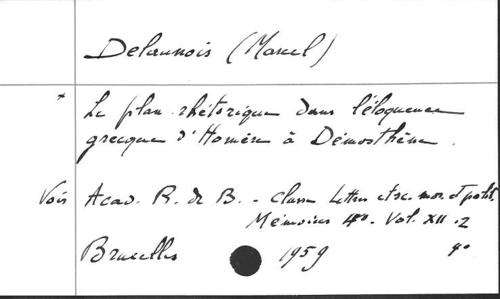 Delaunois (Marcel)
* Le plan rhétorique dans l'éloquence
grecque d'Homère à Démosthène.
Voir Acad. R. de B. - Classe Lettres et sc. mor. et polit.
Mémoires 4°. Vol. XII. 2
Bruxelles 1959 4°